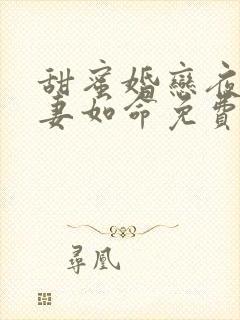 甜蜜婚戀夜
妻如命免費
尋凰